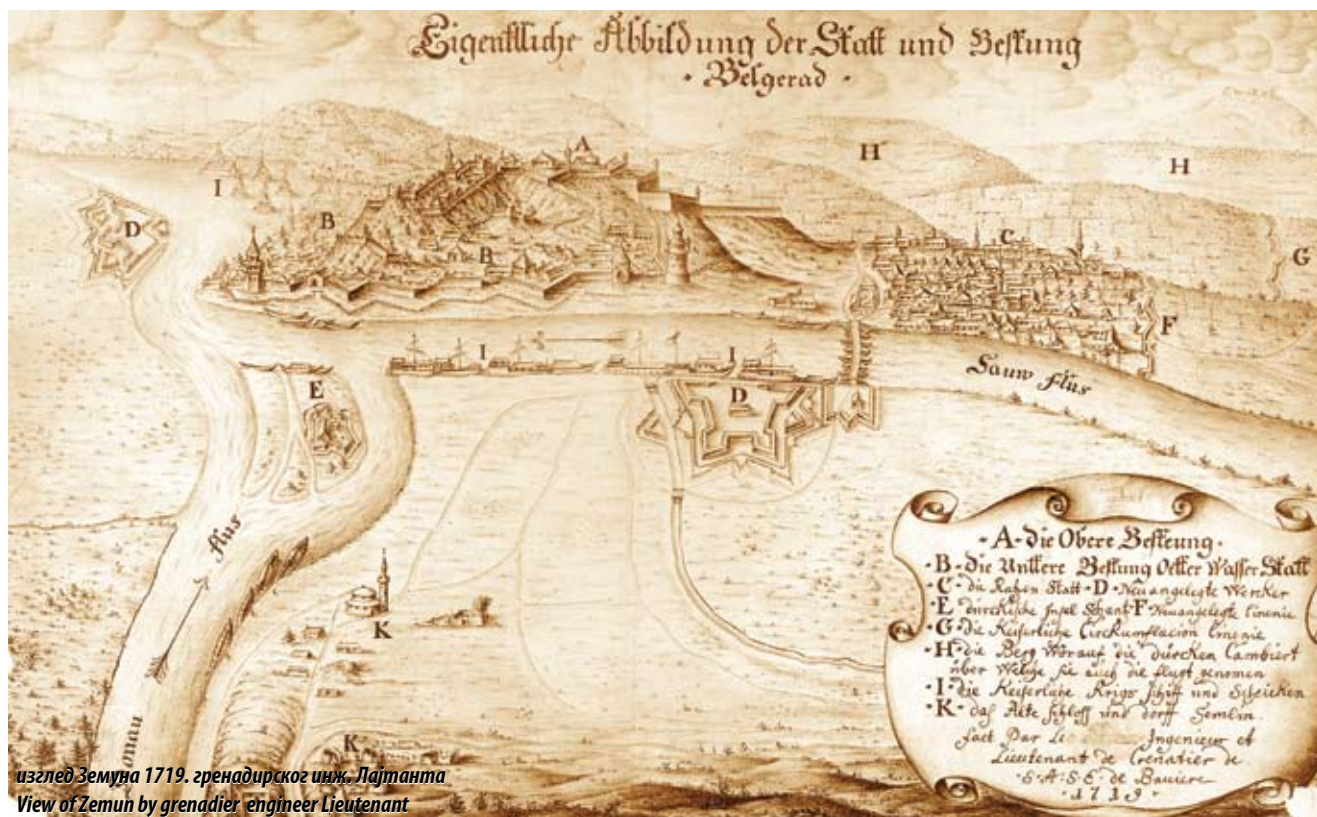 Eigentlliche Abbildung der Statt und Vestung
· Belgerad ·
A
H
H
I
D
B
B
C
G
F
I
I
E
D
Sauw flus
flus
K
K
Donau
· A · die Obere Vesteung ·
· B · die Unttere Vestung Oetter Wasser Statt
· C · die Razen Statt · D · Neuangelegte Wercker
· E · durckische Insel Schantz · F · Neuangelegte Linenie
· G · die Keiserliche Circkumflacion Linenie
· H · die Berg Worauf die durcken Cambiert
über Welche sie auch die flugt genomen
· I · die Keiserliche Krigs schiff und Scheicken
· K · das Alte schloss und dorff Semlin
fact Par Le Ingenieur et
Lieutenant de Grenatier de
· S · A · S · E · de Baviere
· 1719 ·
изглед Земуна 1719. гренадирског инж. Лајтанта
View of Zemun by grenadier engineer Lieutenant